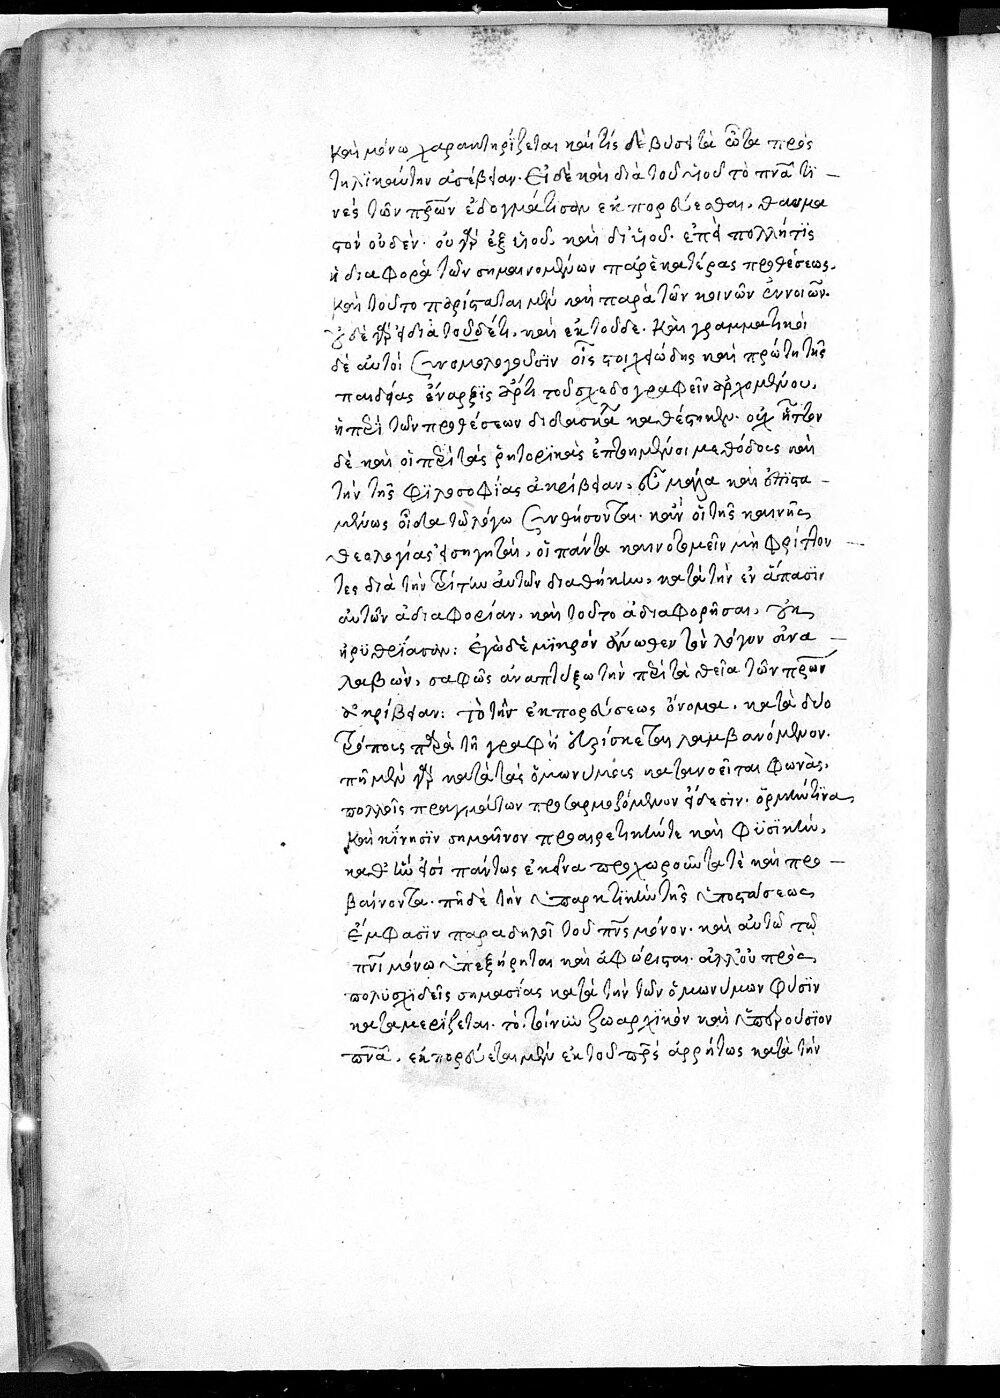 καὶ μόνω χαρακτηρίζεται καὶ τίς δὲ βύσει τὰ ὦτα πρὸς
τηλικαύτην ἀσέβειαν. Εἰ δὲ καὶ διὰ τοῦ υἱοῦ τὸ πνα τι
νὲς τῶν πρων ἐδογμάτισαν ἐκπορεύεσθαι, θαυμα
στὸν οὐδέν. οὐ γὰρ ἐξ υἱοῦ, καὶ δι' υἱοῦ. ἐπεὶ πολλή τις
ἡ διαφορὰ τῶν σημαινομένων παρ' ἑκατέρας προθέσεως.
καὶ τοῦτο παρίσταται μὲν καὶ παρὰ τῶν κοινῶν ἐννοιῶν.
οὐδὲ γὰρ εἰ διὰ τοῦδέ τι, καὶ ἐκ τοῦδε. Καὶ γραμματικοὶ
δὲ αὐτοὶ συνομολογοῦσιν οἷς στοιχειώδης καὶ πρώτη τῆς
παιδείας ἔναρξις ἄρτι τοῦ σχεδογραφεῖν ἀρχομένου,
ἡ περὶ τῶν προθέσεων διδασκαλία καθέστηκεν. οὐχ ἧττον
δὲ καὶ οἱ περὶ τὰς ῥητορικὰς ἐπτοημένοι μεθόδους καὶ
τὴν τῆς φιλοσοφίας ἀκρίβειαν, εὖ μάλα καὶ ἐπιστα
μένως οἶδα τῶ λόγω συνθήσονται. κἂν οἱ τῆς καινῆς
θεολογίας εἰσηγηταὶ, οἱ πάντα καινοτομεῖν μὴ φρίττον
τες διὰ τὴν τρίτην αὐτῶν διαθήκην, κατὰ τὴν ἐν ἅπασιν
αὐτῶν ἀδιαφορίαν, καὶ τοῦτο ἀδιαφορῆσαι, οὐκ
ἠρυθρίασαν: Ἐγὼ δὲ μικρὸν ἄνωθεν τὸν λόγον ἀνα
λαβὼν, σαφῶς ἀναπτύξω τὴν περὶ τὰ θεῖα τῶν πρων
ἀκρίβειαν: τὸ τῆς ἐκπορεύσεως ὄνομα, κατὰ δύο
τρόπους παρὰ τῆ γραφῆ εὑρίσκεται λαμβανόμενον.
πῆ μὲν γὰρ κατὰ τὰς ὁμωνύμους κατανοεῖται φωνὰς,
πολλοῖς πραγμάτων προσαρμοζόμενον εἴδεσιν. ὁρμήν τινα
καὶ κίνησιν σημαῖνον προαιρετικήν τε καὶ φυσικὴν,
καθ' ἣν εἰσὶ πάντως ἐκεῖνα προχωροῦντά τε καὶ προ
βαίνοντα. πῆ δὲ τὴν ὑπαρκτικὴν τῆς ὑποστάσεως
ἔμφασιν παραδηλοῖ τοῦ πνς μόνον. καὶ αὐτῶ τῶ
πνι μόνω ὑπεξήρηται καὶ ἀφώρισται. ἀλλ' οὐ πρὸς
πολυσχιδεῖς σημασίας κατὰ τὴν τῶν ὁμωνύμων φύσιν
καταμερίζεται. τὸ τοίνυν ζωαρχικὸν καὶ ὑπερούσιον
πνα, ἐκπορεύεται μὲν ἐκ τοῦ πρς ἀρρήτως κατὰ τὴν